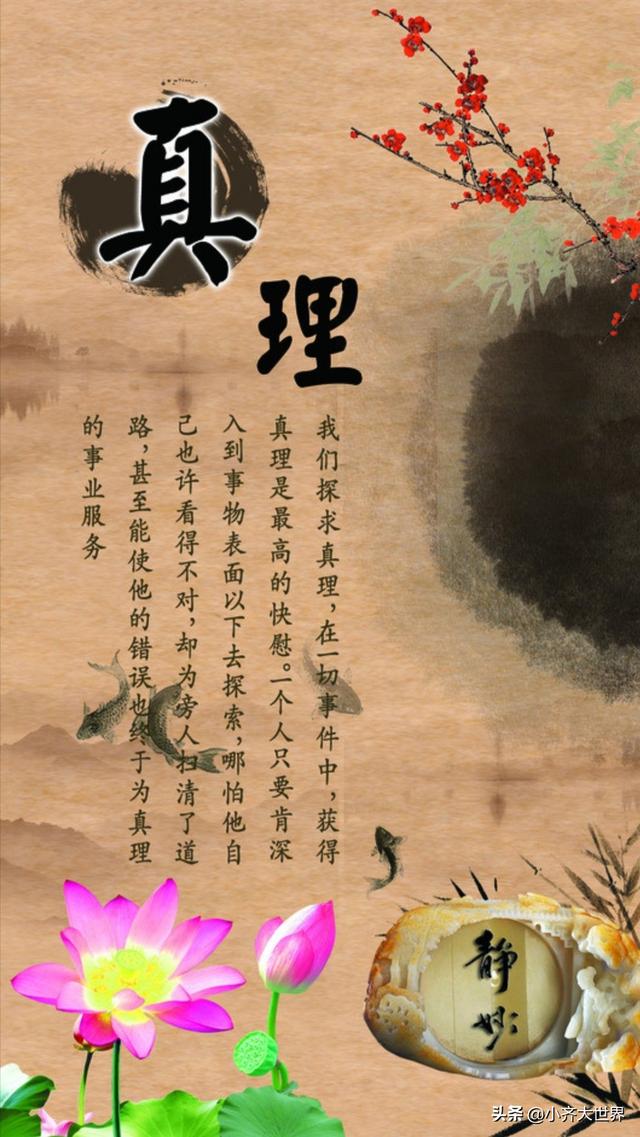 真
理
我们探求真理，在一切事件中，获得
真理是最高的快慰。一个人只要肯深
入到事物表面以下去探索，哪怕他自
己也许看得不对，却为旁人扫清了道
路，甚至能使他的错误也终于为真理
的事业服务
静
妙
头条 @小齐大世界